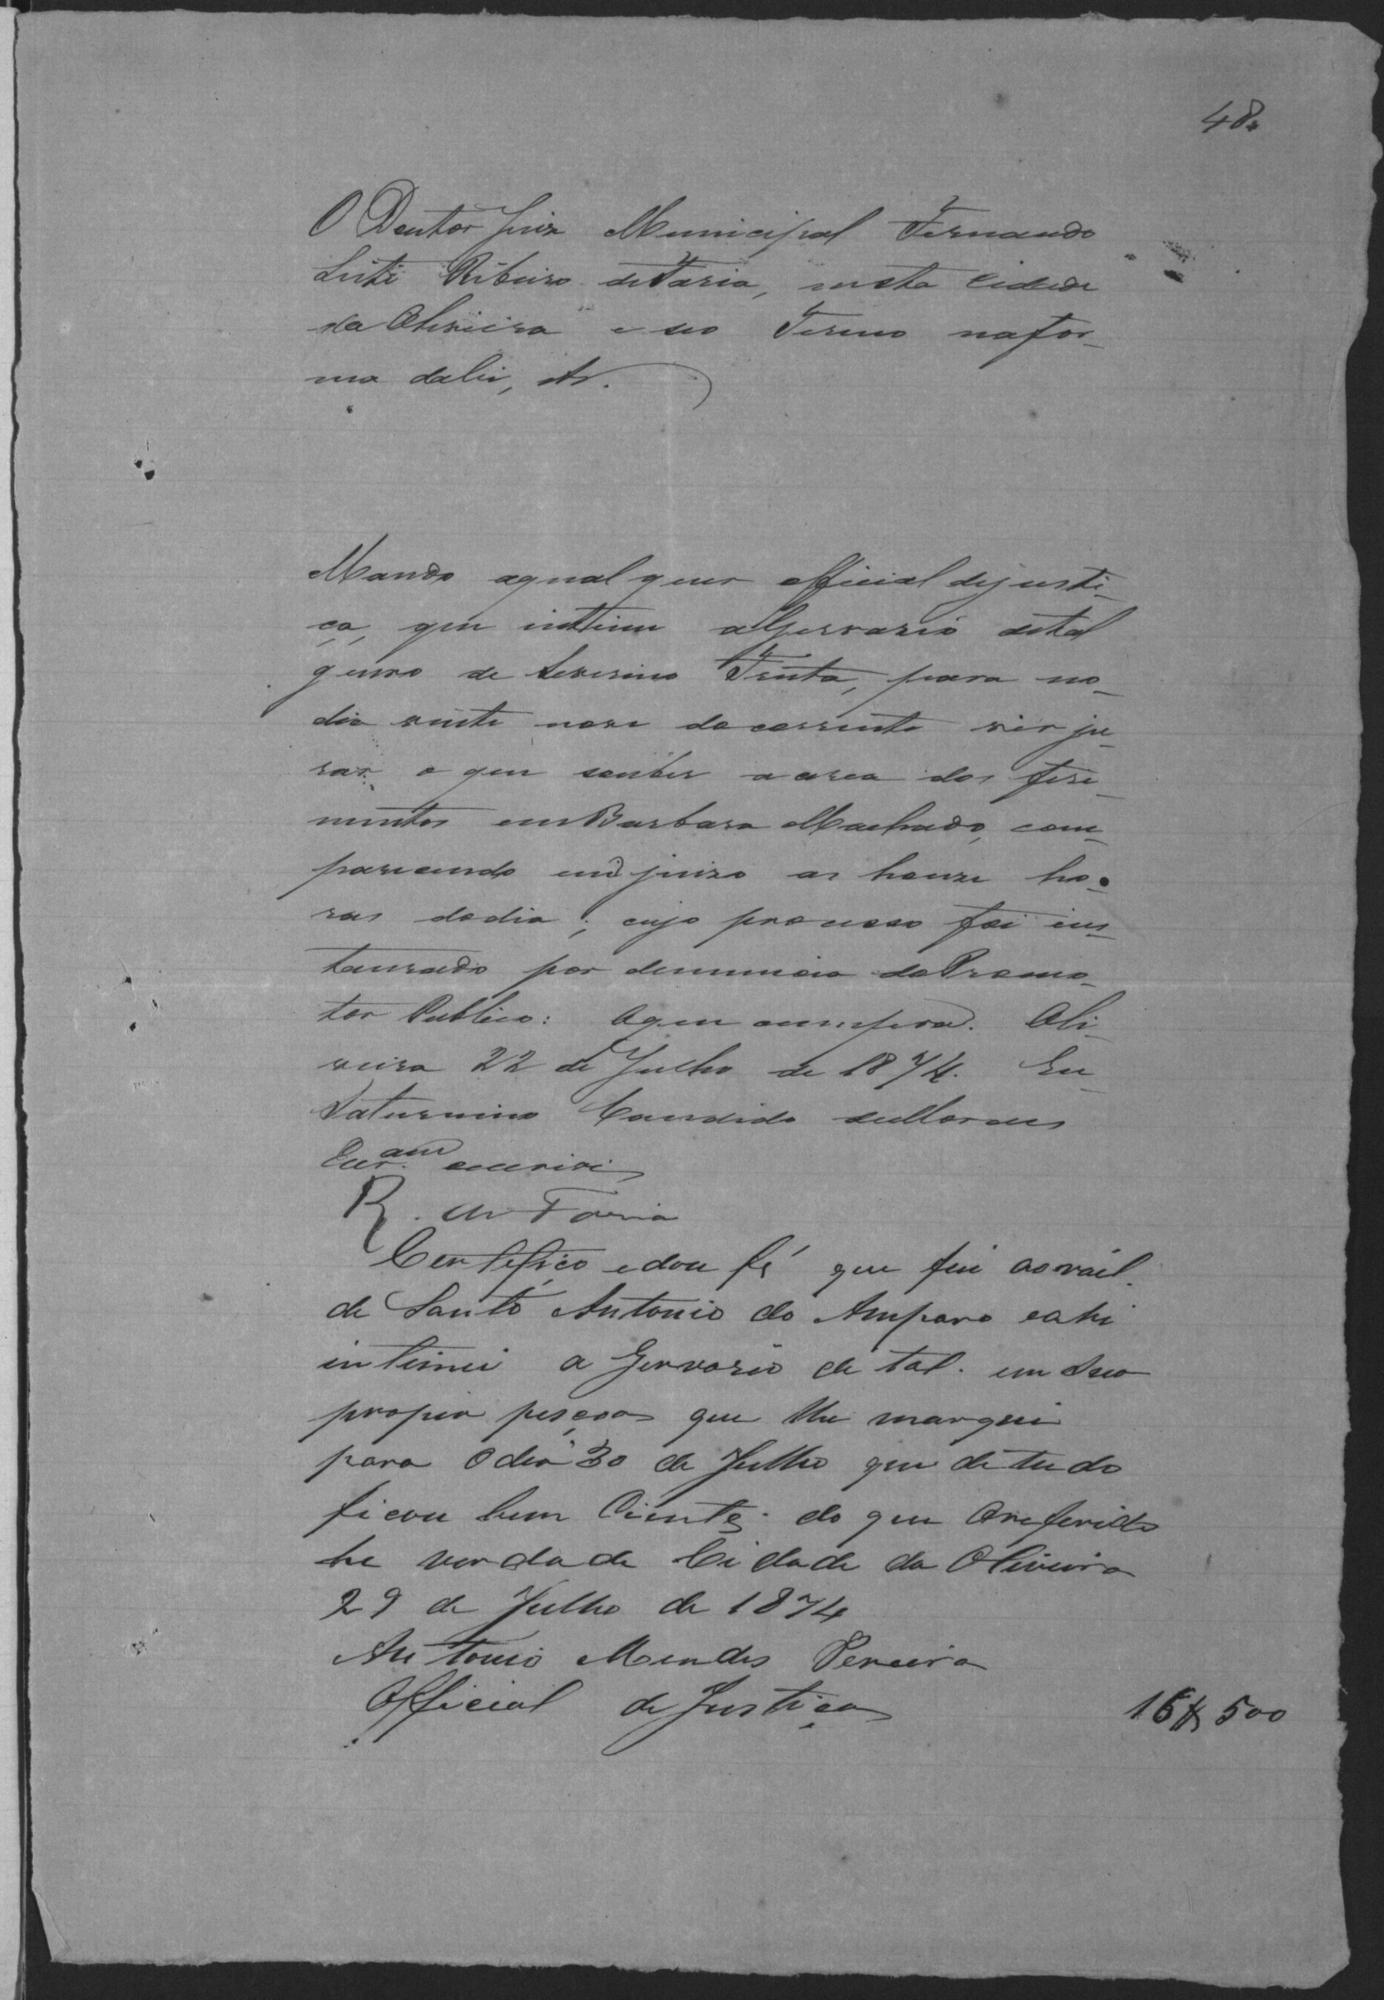 48
O Doutor Juiz Municipal Fernando
Leite Ribeiro de Faria, nesta Cidade
da Oliveira e seo Termo na for-
ma da lei, etc.
Mando aqualquer official dejusti-
ça, que intime a Gervasio de tal
genro de Severino Fruta, para no-
dia vinte nove do corrente vir ju-
rar o que souber a cerca dos feri-
mentos em Barbara Machado, com-
parecendo em juizo as honze ho-
ras do dia; cujo processo foi ins-
taurado por denuncia do Promo-
tor Publico: O que cumpra. Oli-
veira 22 de Julho de 1874. Eu
Saturnino Candido de Moraes
Escr.am escrivi
R. de Faria
Certefico e dou fé que fui ao
de Santo Antonio do Amparo eahi
intimei a Gervasio de tal. em sua
propia peçoa que lhe marquei
para o dia 30 de Julho que de tudo
ficou bem Ciente; do que Oreferido
he verdade Cidade da Oliveira
29 de Julho de 1874
Antonio Mendes Pereira
Official de Justiça
16$500